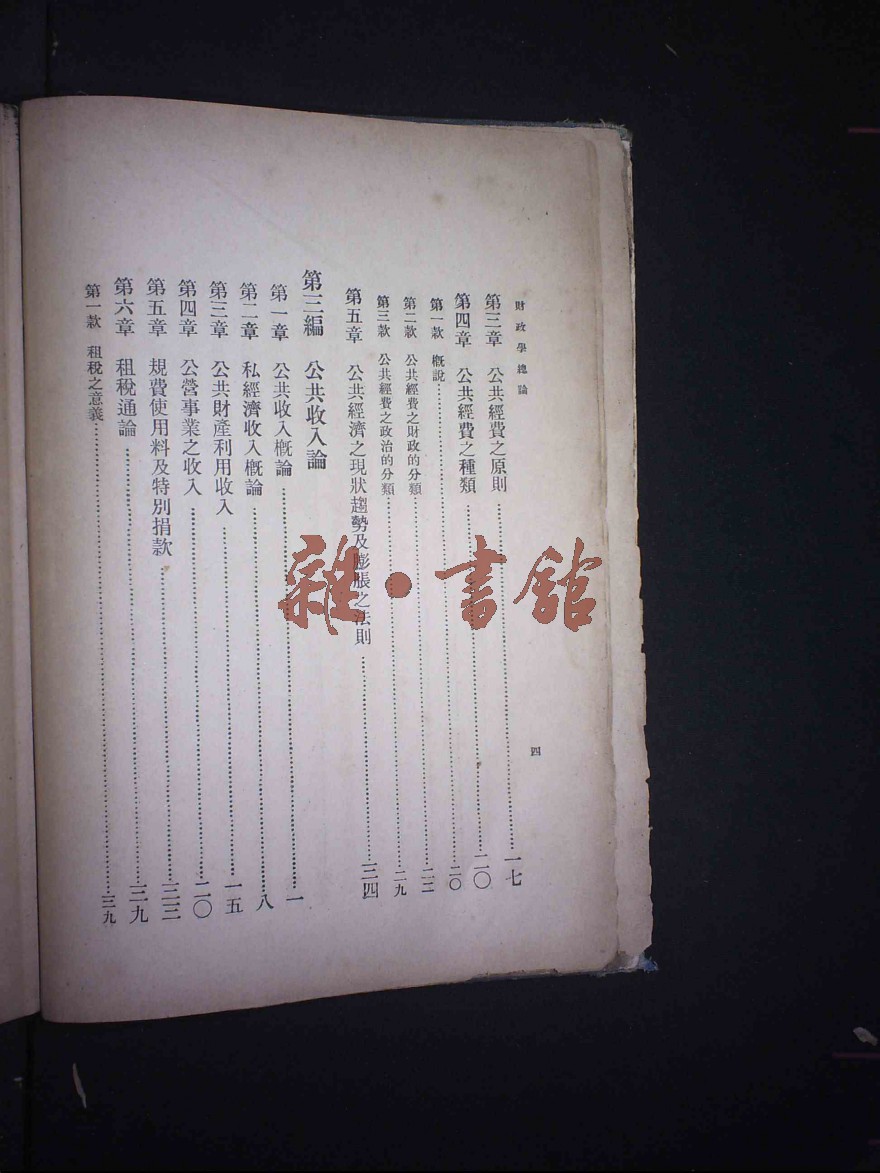 財政學總論
四
第三章 公共經費之原則…一七
第四章 公共經費之種類…二〇
第一款 概說…二〇
第二款 公共經費之財政的分類…二二
第三款 公共經費之政治的分類…二九
第五章 公共經濟之現狀趨勢及膨脹之法則…三四
第三編 公共收入論
第一章 公共收入概論…一
第二章 私經濟收入概論…八
第三章 公共財產利用收入…一五
第四章 公營事業之收入…二〇
第五章 規費使用料及特別捐款…三三
第六章 租稅通論…三九
第一款 租稅之意義…三九
雜·書館